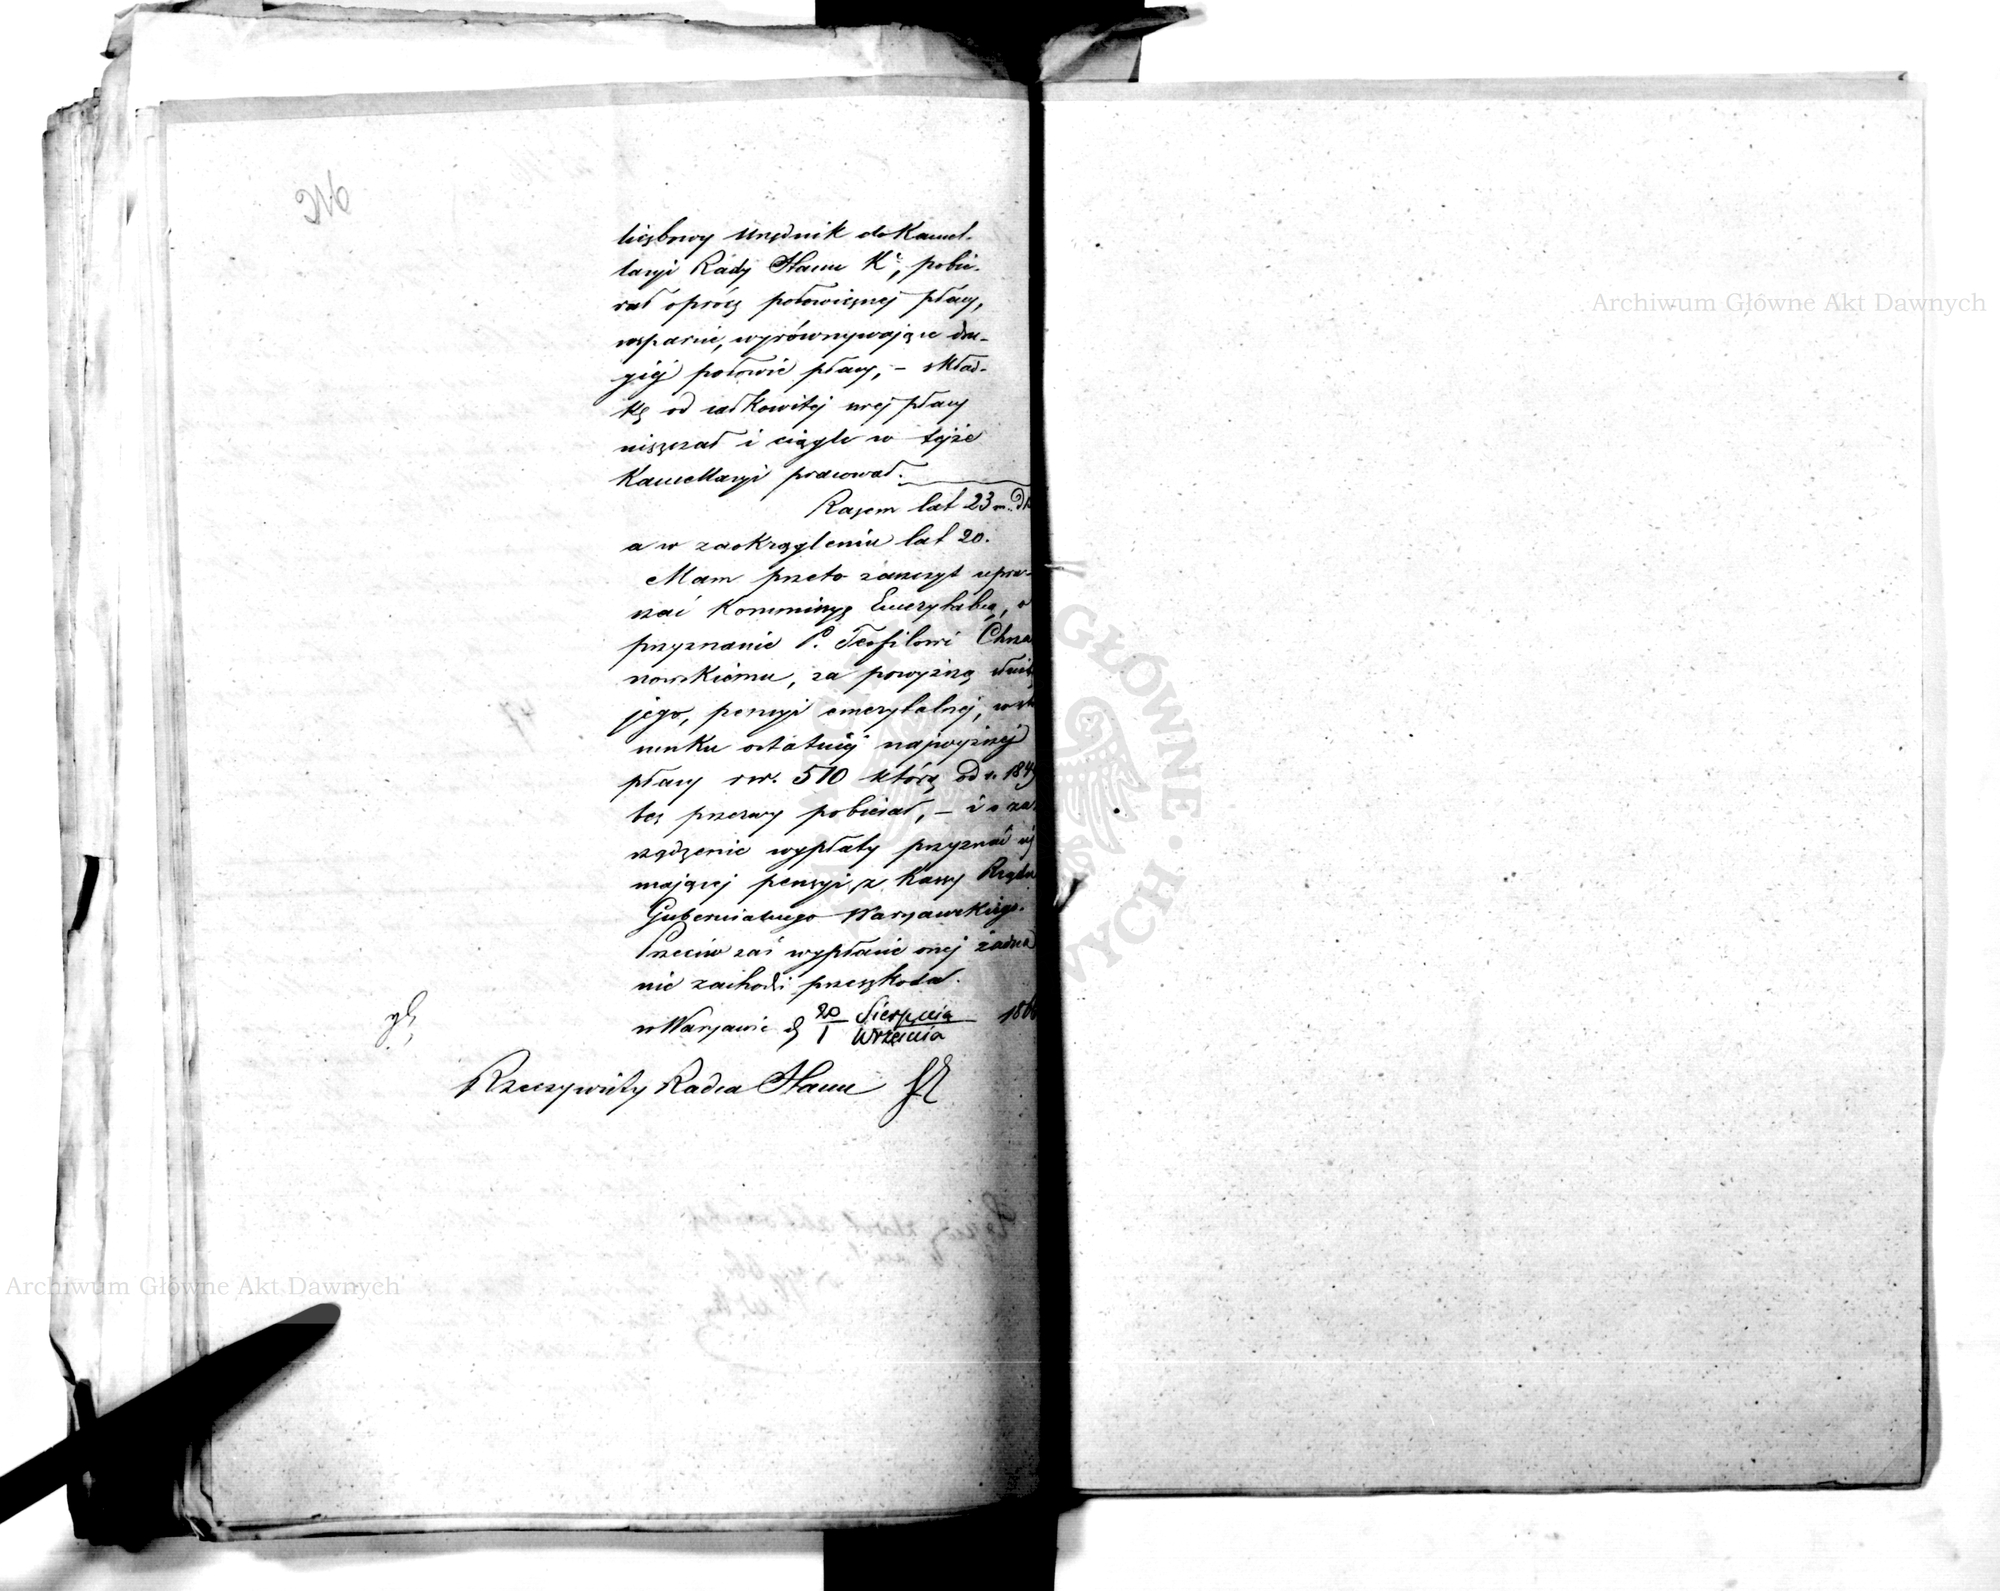 liczbowy Urzędnik do Kancel-
laryi Rady Stanu Kr, pobie-
rał oprócz połowicznej płacy,
wsparcie, wyrównywające dru-
giej połowie płacy, – skład-
kę od całkowitej swej płacy
niszczał i ciągle w tejże
Kancellaryi pracował.
Razem lat 23
a w zaokrągleniu lat 20.
Mam przeto zaszczyt upra-
szać Kommissyę Emerytalną, o
przyznanie P. Teofilowi Chrza
nowskiému, za powyższą służbę
jego, pensyi emerytalnej, w sto
sunku ostatniéj najwyższej
płacy rsr. 510 którą od r. 184
bez przerwy pobierał, – i o za
rządzenie wypłaty przyznać się
mającej pensyi z Kassy Rządu
Gubernialnego Warszawskiego.
Przeciw zaś wypłacie onej żadna
nie zachodzi przeszkoda.
w Warszawie d. 20/1 Sierpnia/Września 186
Rzeczywisty Radca Stanu
Archiwum Główne Akt Dawnych
Archiwum Główne Akt Dawnych